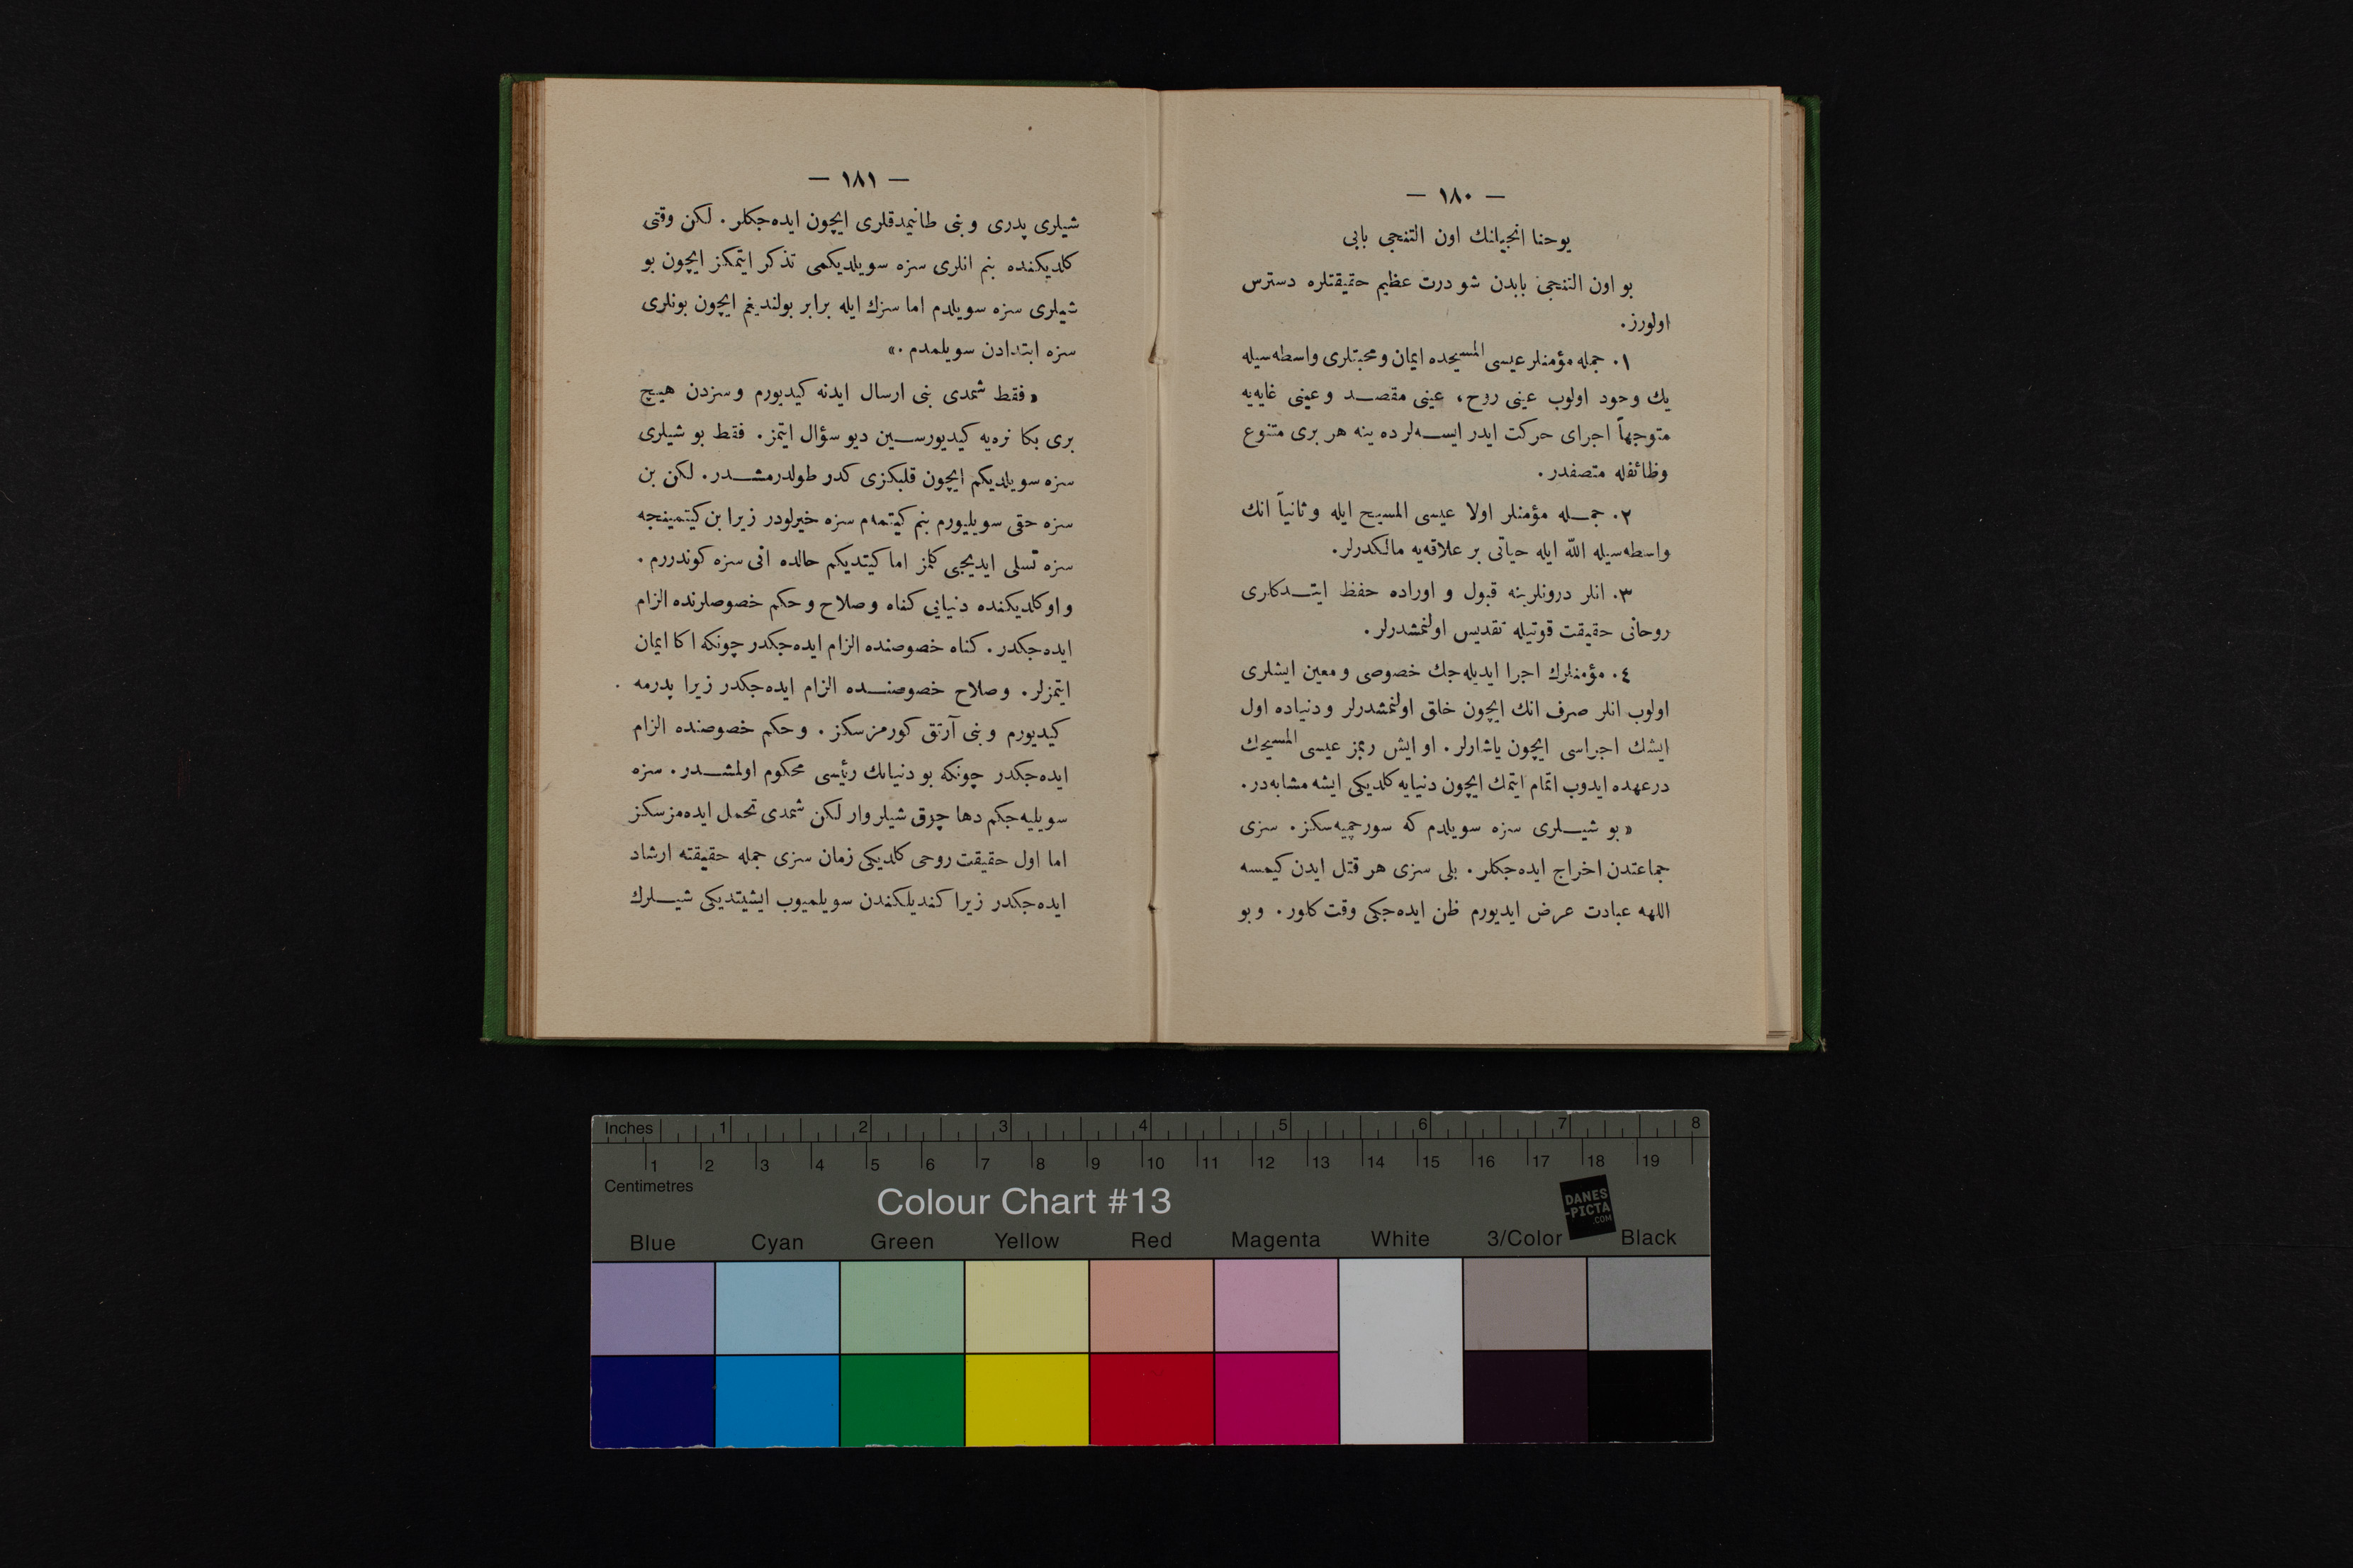 — ١٨٠ —
يوحنا انجيلنك اون التنجى بابى
بو اون التنجى بابدن شو درت عظيم حقيقتلره دسترس
اولورز.
١. جمله مؤمنلر عيسى المسيحده ايمان ومحبتلرى واسطه‌سيله
يك وجود اولوب عينى روح، عينى مقصد وعينى غايه‌يه
متوجهاً اجراى حركت ايدر ايسه‌لر ده ينه هر برى متنوع
وظائفله متصفدر.
٢. جمله مؤمنلر اولا عيسى المسيح ايله وثانياً انك
واسطه‌سيله الله ايله حياتى بر علاقه‌يه مالكدرلر.
٣. انلر درونلرينه قبول و اوراده حفظ ايتدكلرى
روحانى حقيقت قوتيله تقديس اولنمشدرلر.
٤. مؤمنلرك اجرا ايديله‌جك خصوصى ومعين ايشلرى
اولوب انلر صرف انك ايچون خلق اولنمشدرلر ودنياده اول
ايشك اجراسى ايچون ياشارلر. او ايش ربمز عيسى المسيحك
درعهده ايدوب اتمام ايتمك ايچون دنيايه كلديكى ايشه مشابه‌در.
«بو شيلرى سزه سويلدم كه سورچميه‌سكز. سزى
جماعتدن اخراج ايده‌جكلر. بلى سزى هر قتل ايدن كيمسه
اللهه عبادت عرض ايديورم ظن ايده‌جكى وقت كلور. وبو
— ١٨١ —
شيلرى پدرى وبنى طانيمدقلرى ايچون ايده‌جكلر. لكن وقتى
كلديكنده بنم انلرى سزه سويلديكمى تذكر ايتمكز ايچون بو
شيلرى سزه سويلدم اما سزك ايله برابر بولنديغم ايچون بونلرى
سزه ابتدادن سويلمدم.»
«فقط شمدى بنى ارسال ايدنه كيديورم وسزدن هيچ
برى بكا نره‌يه كيديورسين ديو سؤال ايتمز. فقط بو شيلرى
سزه سويلديكم ايچون قلبكزى كدر طولدرمشدر. لكن بن
سزه حقى سويليورم بنم كيتمه‌م سزه خيرلودر زيرا بن كيتمينجه
سزه تسلى ايديجى كلمز اما كيتديكم حالده انى سزه كوندررم.
واو كلديكنده دنيايى كناه وصلاح وحكم خصوصلرنده الزام
ايده‌جكدر. كناه خصوصنده الزام ايده‌جكدر چونكه اكا ايمان
ايتمزلر. وصلاح خصوصنده الزام ايده‌جكدر زيرا پدرمه
كيديورم وبنى آرتق كورمزسكز. وحكم خصوصنده الزام
ايده‌جكدر چونكه بو دنيانك رئيسى محكوم اولمشدر. سزه
سويليه‌جكم دها چوق شيلر وار لكن شمدى تحمل ايده‌مزسكز
اما اول حقيقت روحى كلديكى زمان سزى جمله حقيقته ارشاد
ايده‌جكدر زيرا كنديلكندن سويلميوب ايشيتديكى شيلرك
Inches 1 2 3 4 5 6 7 8
1 2 3 4 5 6 7 8 9 10 11 12 13 14 15 16 17 18 19
Centimetres
Colour Chart #13
DANES
-PICTA
.COM
Blue Cyan Green Yellow Red Magenta White 3/Color Black